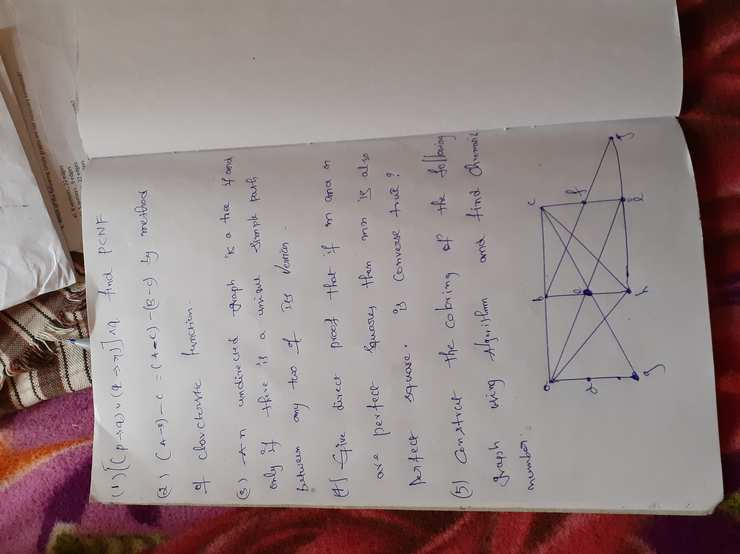 (1) [(p→q) ∨ (q→r)] ∧ q find PCNF
(2) (A-B)-C = (A-C)-(B-C) by method
of charcterstic function.
(3) An undirected graph is a tree if and
only if there is a unique simple path
between any two of its
(4) Give direct proof that if m and n
are perfect squares then mn is also
perfect square. is converse true?
(5) Construct the coloring of the following
graph using Algorithm and find Chromatic
number.
c f
b e l
a h
d g